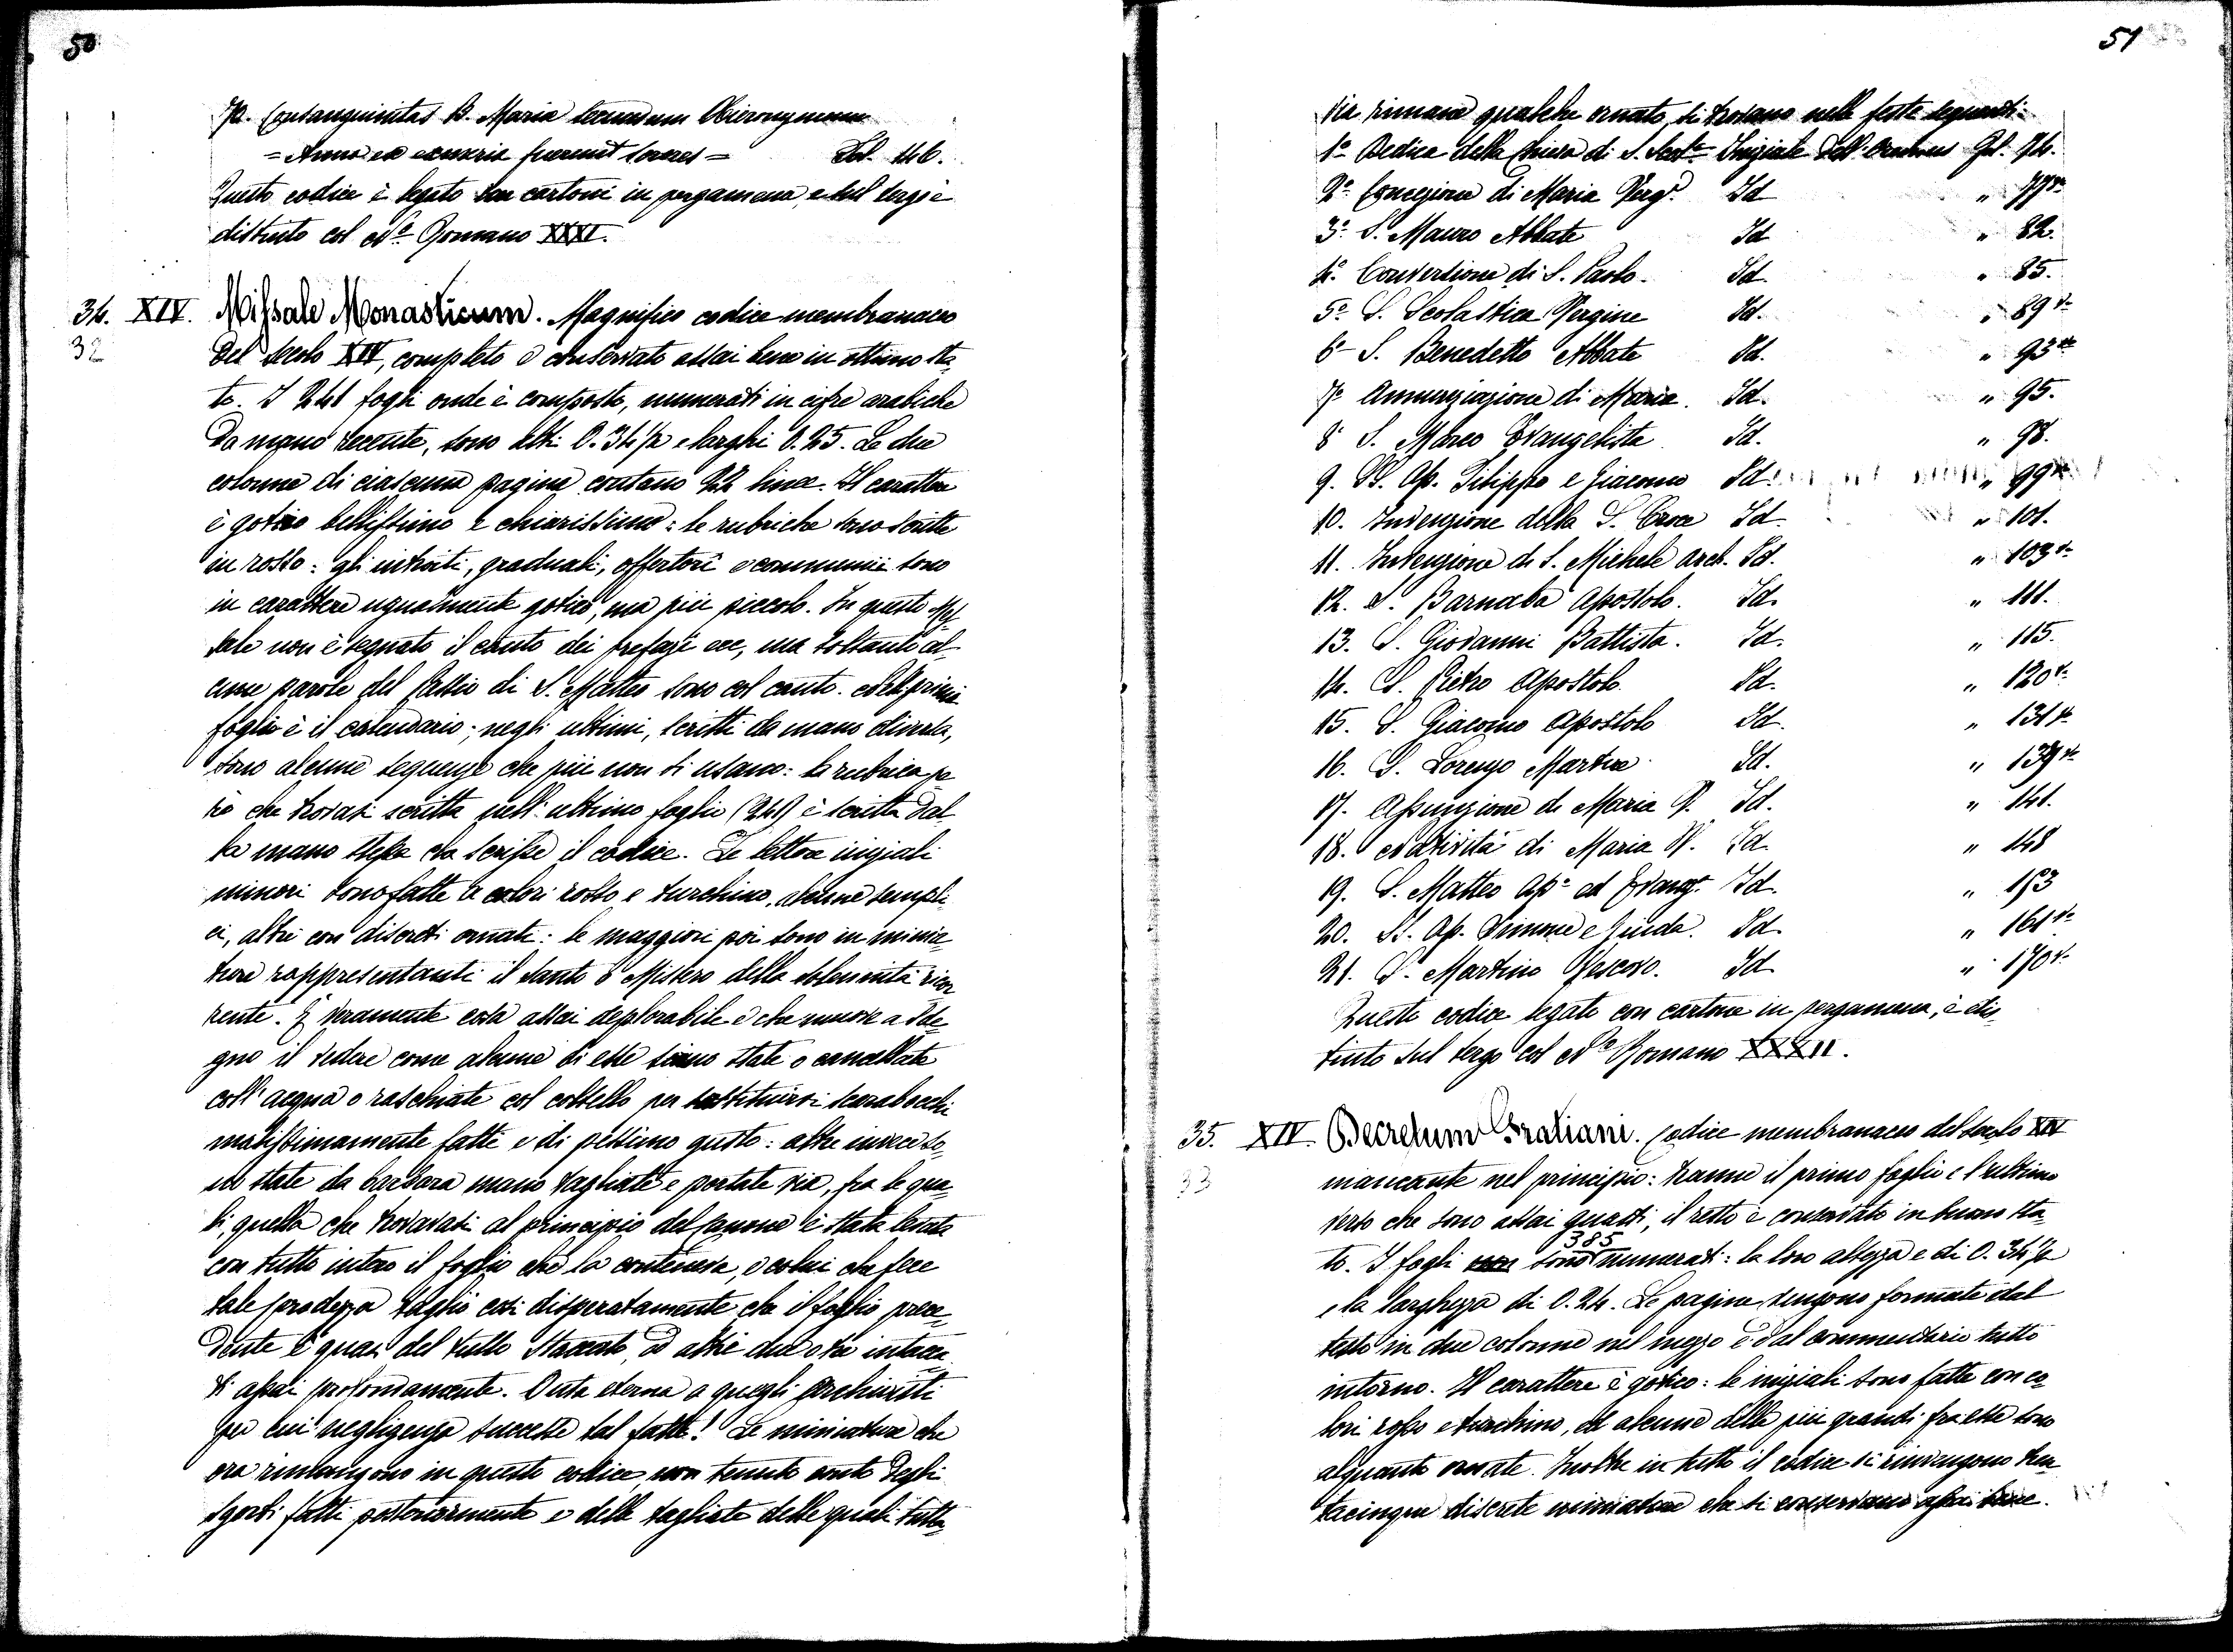 50
7º. Consanguinitas B. Mariæ secundum Hieronymum
= Anna ex sororis fuerunt sorores = Fol. 146.
Questo codice è legato con cartoni in pergamena, e sul tergo è
distinto col Nº Romano XXXI.
34. XIV. Missale Monasticum. Magnifico codice membranaceo
32
del secolo XIV, completo e conservato assai bene in ottimo sta-
to. I 241 fogli onde è composto, numerati in cifre arabiche
da mano recente, sono alti 0.34 1/2 e larghi 0.25. Le due
colonne di ciascuna pagina contano 22 linee. Il carattere
è gotico bellissimo e chiarissimo: le rubriche sono scritte
in rosso: gli introiti, graduali, offertorî e communii sono
in carattere ugualmente gotico, ma più piccolo. In questo Mis-
sale non è segnato il canto dei prefazî ecc, ma soltanto al-
cune parole del Passio di S. Matteo sono col canto. Nel primi
foglio è il calendario; negli ultimi, scritti da mano diversa,
sono alcune sequenze che più non si usano: la rubrica pe-
rò che trovasi scritta nell'ultimo foglio (241) è scritta dal-
la mano stessa che scrisse il codice. Le lettere iniziali
minori sono fatte a colori rosso e turchino, alcune sempli-
ci, altri con discreti ornati: le maggiori poi sono in minia-
ture rappresentanti il santo o Mistero della solennità ricor-
rente. È veramente cosa assai deplorabile e che muove a sde-
gno il vedere come alcune di esse siano state o cancellate
coll'acqua o raschiate col coltello per sostituirvi scarabocchi
malissimamente fatti e di pessimo gusto: altre invece so-
no state da barbara mano tagliate e portate via, fra le qua-
li, quella che trovavasi al principio del canone è stata levata
con tutto intero il foglio che la conteneva, e colui che fece
tale prodezza tagliò così disperatamente che il foglio prece-
dente è quasi del tutto staccato, ed altri due o tre intacca-
ti assai profondamente. Onta eterna a quegli archivisti
per cui negligenza successe tal fatto! Le miniature che
ora rimangono in questo codice, non tenuto conto degli
sgorbi fatti posteriormente e delle tagliate delle quali tutta-
51
via rimane qualche ornato, si trovano nelle feste seguenti:
1º Dedica della Chiesa di S. Scolª Iniziale dell'Oremus Fol. 74.
2º Concezione di Maria Verg. Id. " 77 vº
3º S. Mauro Abbate Id. " 82.
4º Conversione di S. Paolo. Id. " 85.
5º S. Scolastica Vergine Id. " 89 vº
6º S. Benedetto Abbate Id. " 93 vº
7º Annunziazione di Maria. Id. " 95.
8º S. Marco Evangelista Id. " 98.
9. SS. Ap. Filippo e Giacomo Id. " 99 vº
10. Invenzione della S. Croce Id. " 101.
11. Invenzione di S. Michele arch. Id. " 103 vº
12. S. Barnaba Apostolo. Id. " 111.
13. S. Giovanni Battista. Id. " 115.
14. S. Pietro Apostolo. Id. " 120 vº
15. S. Giacomo Apostolo Id. " 131 vº
16. S. Lorenzo Martire Id. " 139 vº
17. Assunzione di Maria V. Id. " 141.
18. Natività di Maria V. Id. " 148
19. S. Matteo Apº ed Evang. Id. " 153
20. SS. Ap. Simone e Giuda. Id. " 161 vº
21. S. Martino Vescovo. Id. " 170 vº
Questo codice legato con cartone in pergamena, è dis-
tinto sul tergo col Nº Romano XXXII.
35. XIV. Decretum Gratiani. Codice membranaceo del secolo XIV
33
mancante nel principio: tranne il primo foglio e l'ultimo
verso che sono assai guasti, il resto è conservato in buono sta-
to. I fogli non sono 385 numerati: la loro altezza è di 0.34 1/2
e la larghezza di 0.24. Le pagine vengono formate dal
testo in due colonne nel mezzo e dal commentario tutto
intorno. Il carattere è gotico: le iniziali sono fatte con co-
lori rosso e turchino, ed alcune delle più grandi fra esse sono
alquanto ornate. Inoltre in tutto il codice si rinvengono tren-
tacinque discrete miniature che si conservano assai bene.